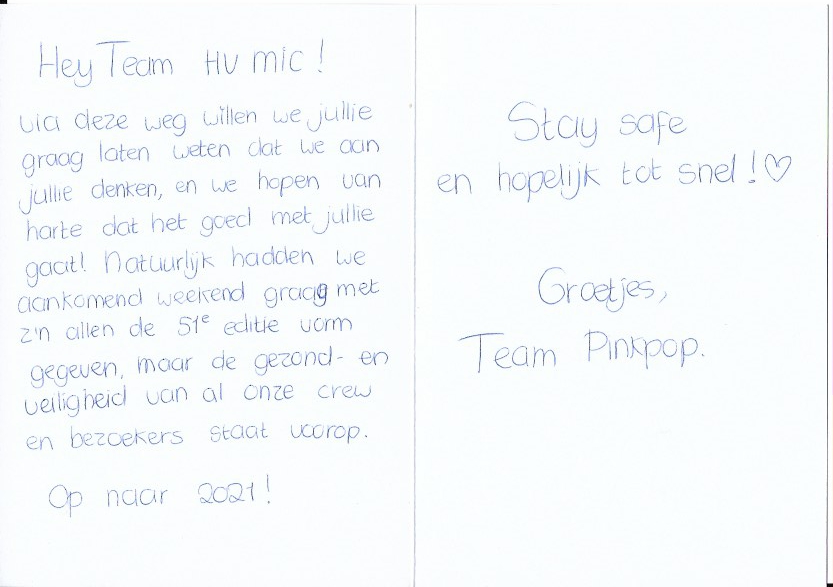 Hey Team HV mic!
via deze weg willen we jullie
graag laten weten dat we aan
jullie denken, en we hopen van
harte dat het goed met jullie
gaat! Natuurlijk hadden we
aankomend weekend graag met
z'n allen de 51e editie vorm
gegeven, maar de gezond- en
veiligheid van al onze crew
en bezoekers staat voorop.
Op naar 2021!
Stay safe
en hopelijk tot snel!♡
Groetjes,
Team Pinkpop.